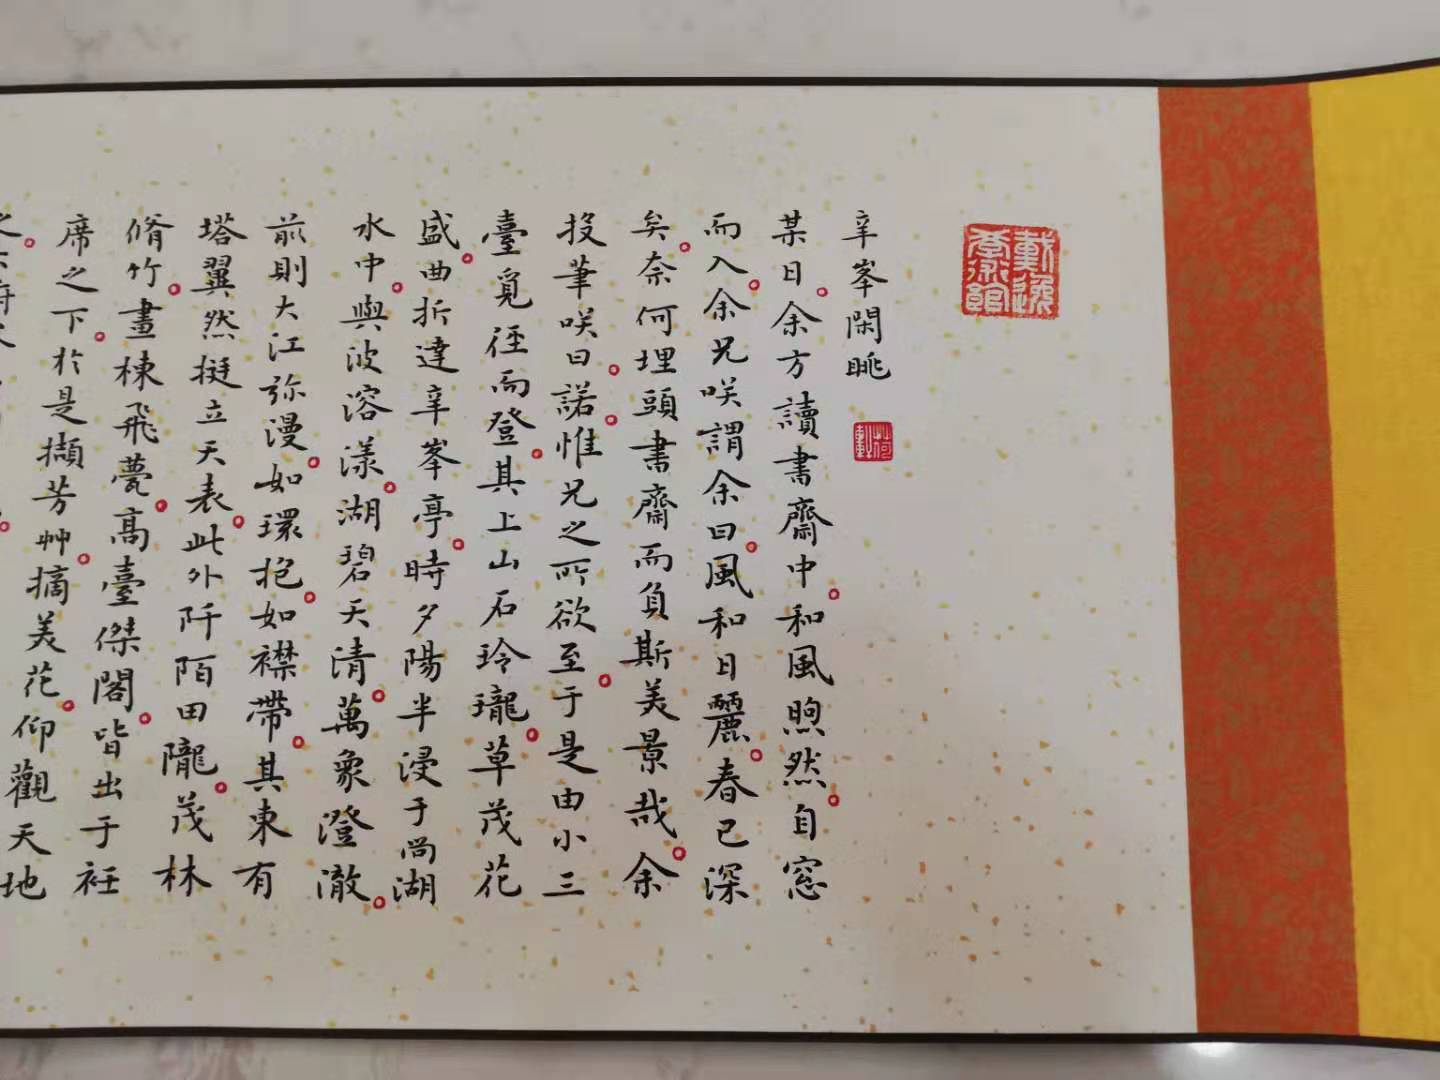 戴逸學術館
辛峯閑眺
某日余方讀書齋中和風煦然自窓
而入余兄咲謂余曰風和日麗春已深
矣奈何埋頭書齋而負斯美景哉余
投筆咲曰諾惟兄之所欲至于是由小三
臺覓徑而登其上山石玲瓏草茂花
盛曲折達辛峯亭時夕陽半浸于尚湖
水中與波溶漾湖碧天清萬象澄澈
前則大江弥漫如環抱如襟帶其東有
塔翼然挺立天表此外阡陌田隴茂林
脩竹畫棟飛甍高臺傑閣皆出于衽
席之下於是擷芳艸摘美花仰觀天地
之